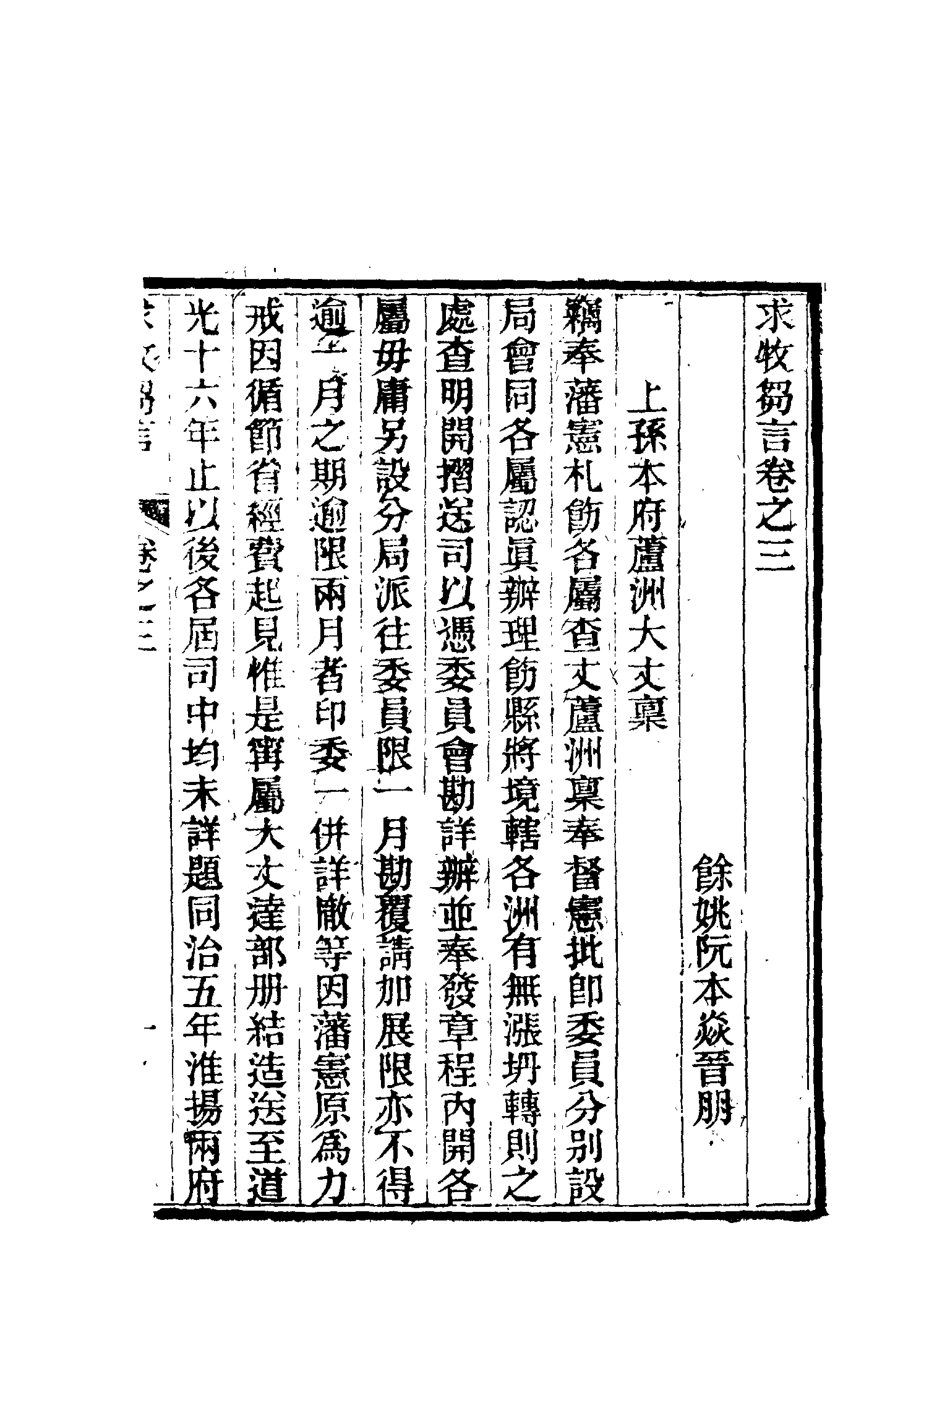 求牧芻言卷之三
餘姚阮本焱晉朋
上孫本府蘆洲大丈稟
竊奉藩憲札飭各屬查丈蘆洲稟奉督憲批即委員分別設
局會同各屬認眞辦理飭縣將境轄各洲有無漲坍轉則之
處查明開摺送司以憑委員會勘詳辦並奉發章程內開各
屬毋庸另設分局派往委員限一月勘覆請加展限亦不得
逾一月之期逾限兩月者印委一併詳撤等因藩憲原爲力
戒因循節省經費起見惟是甯屬大丈達部册結造送至道
光十六年止以後各屆司中均未詳題同治五年淮揚兩府
求牧芻言
卷之三
一